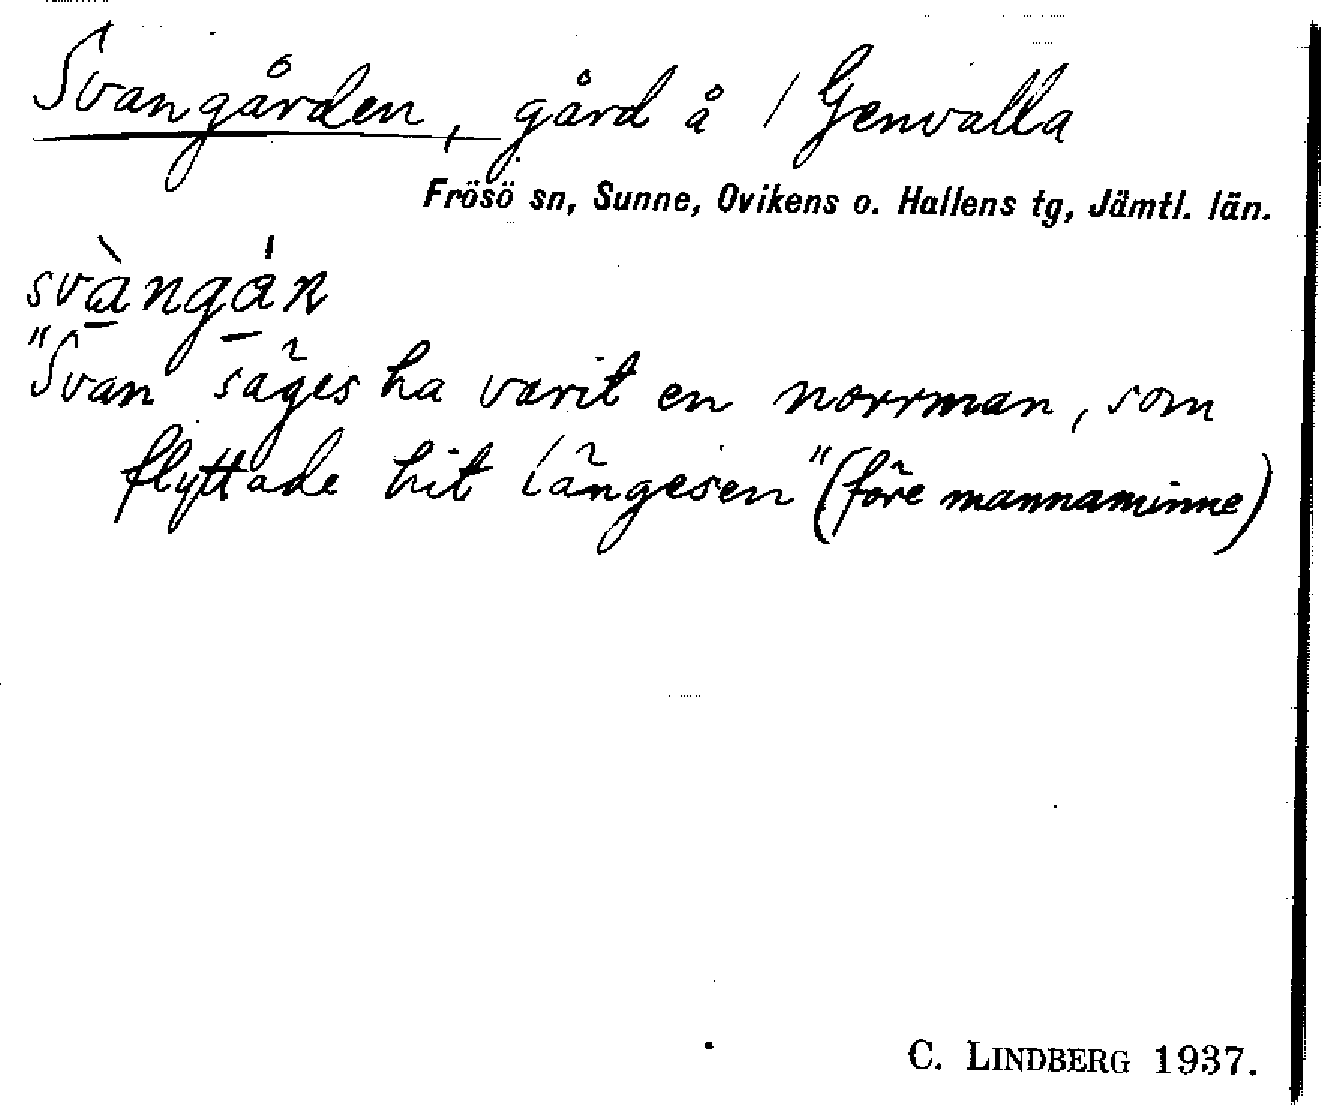 Svangården, gård å 1 Genvalla
Frösö sn, Sunne, Ovikens o. Hallens tg, Jämtl. län.
svàngán
"Svan" säges ha varit en norrman, som
flyttade hit längesen" (före mannaminne)
C. LINDBERG 1937.